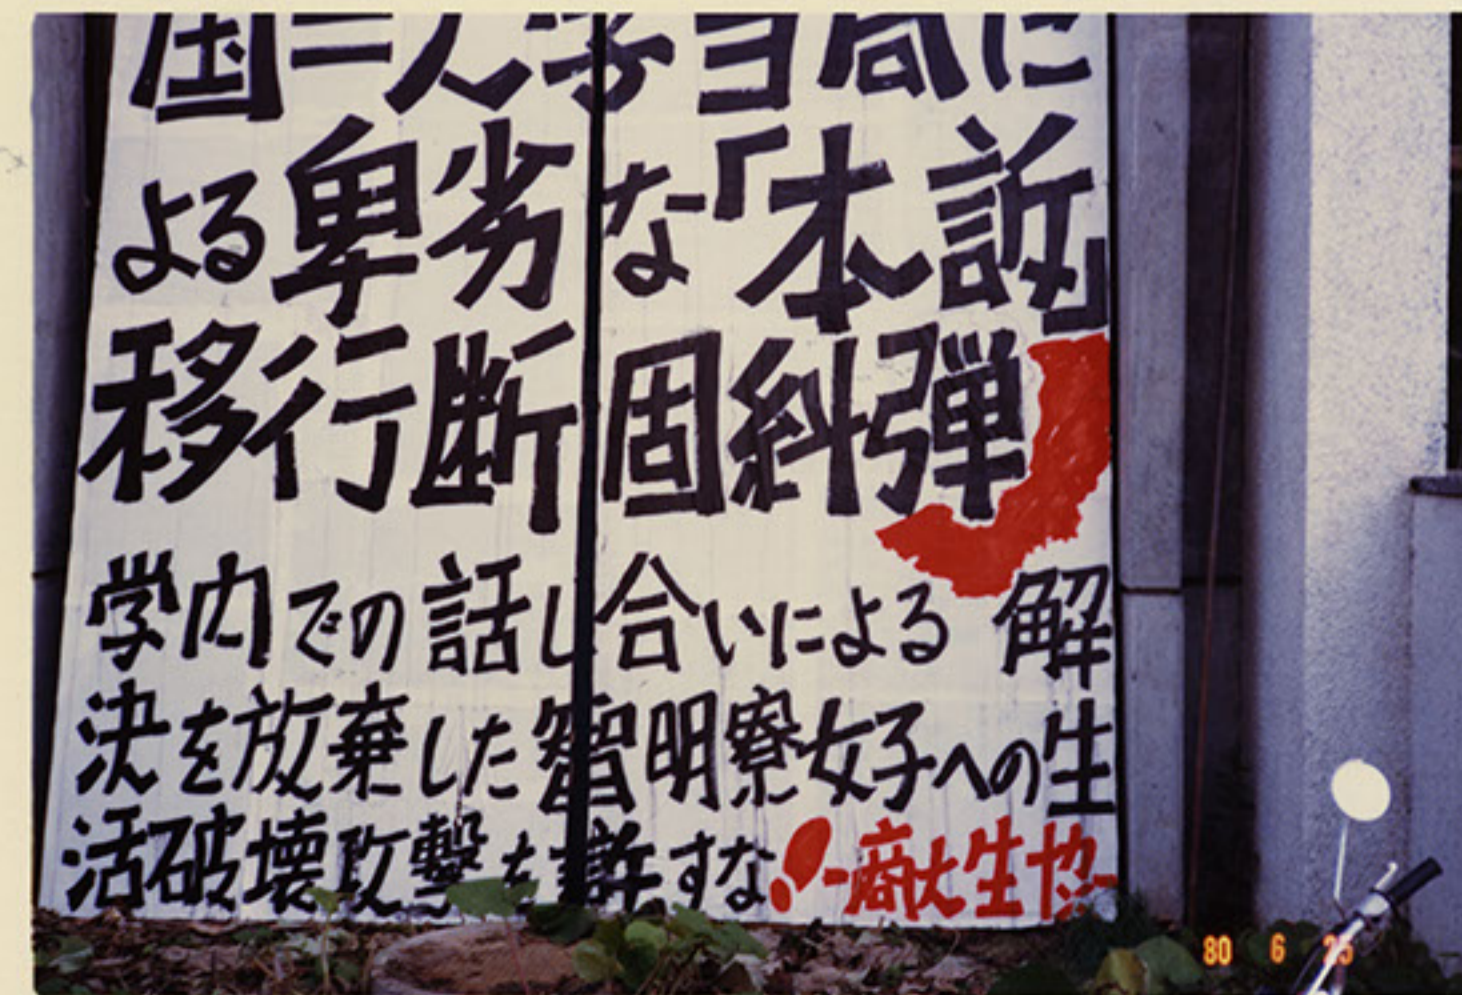 国=大学当局に
よる卑劣な「本訴」
移行断固糾弾
学内での話し合いによる解
決を放棄した智明寮女子への生
活破壊攻撃を許すな!-商大生協-
80 6 25